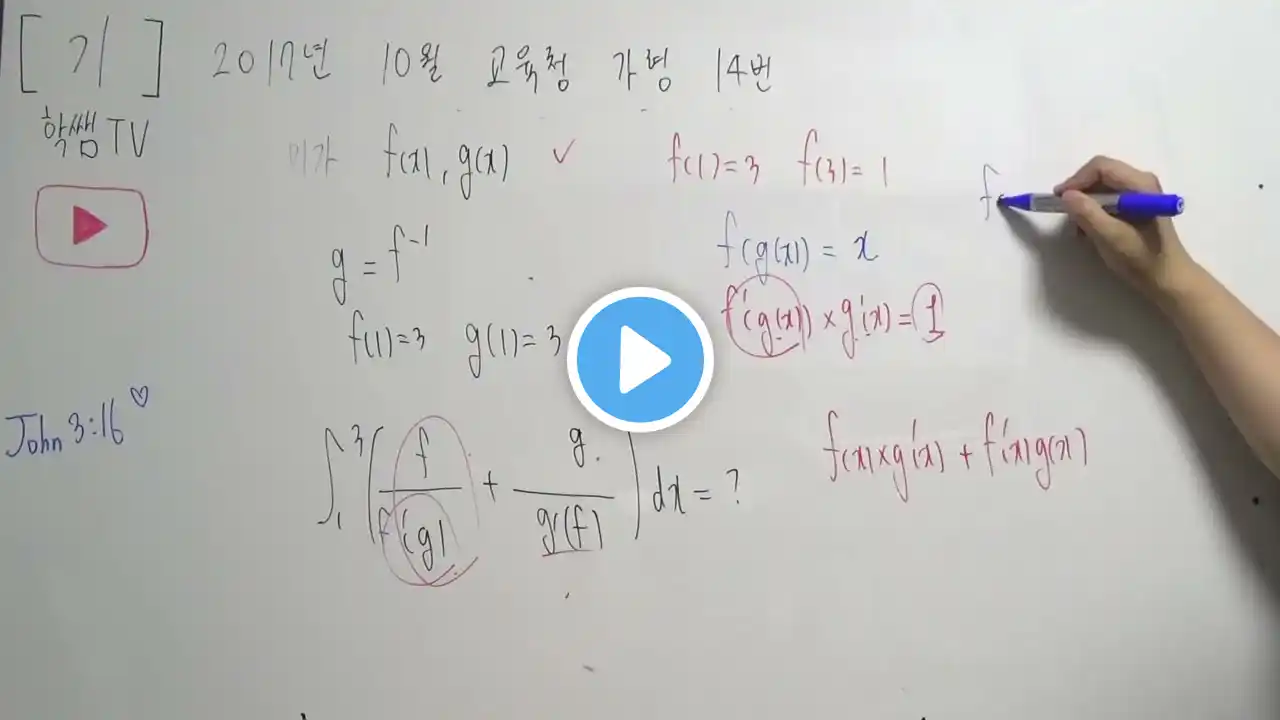 [ 가 ] 2017년 10월 교육청 가형 14번
학쌤TV
미가 f(x), g(x) ✓ f(1)=3 f(3)=1
g = f⁻¹ f(g(x)) = x
f(1)=3 g(1)=3 f'(g(x)) × g'(x) = 1
John 3:16 ♡
∫₁³ ( f / f'(g) + g / g'(f) ) dx = ?
f(x)×g'(x) + f'(x)g(x)